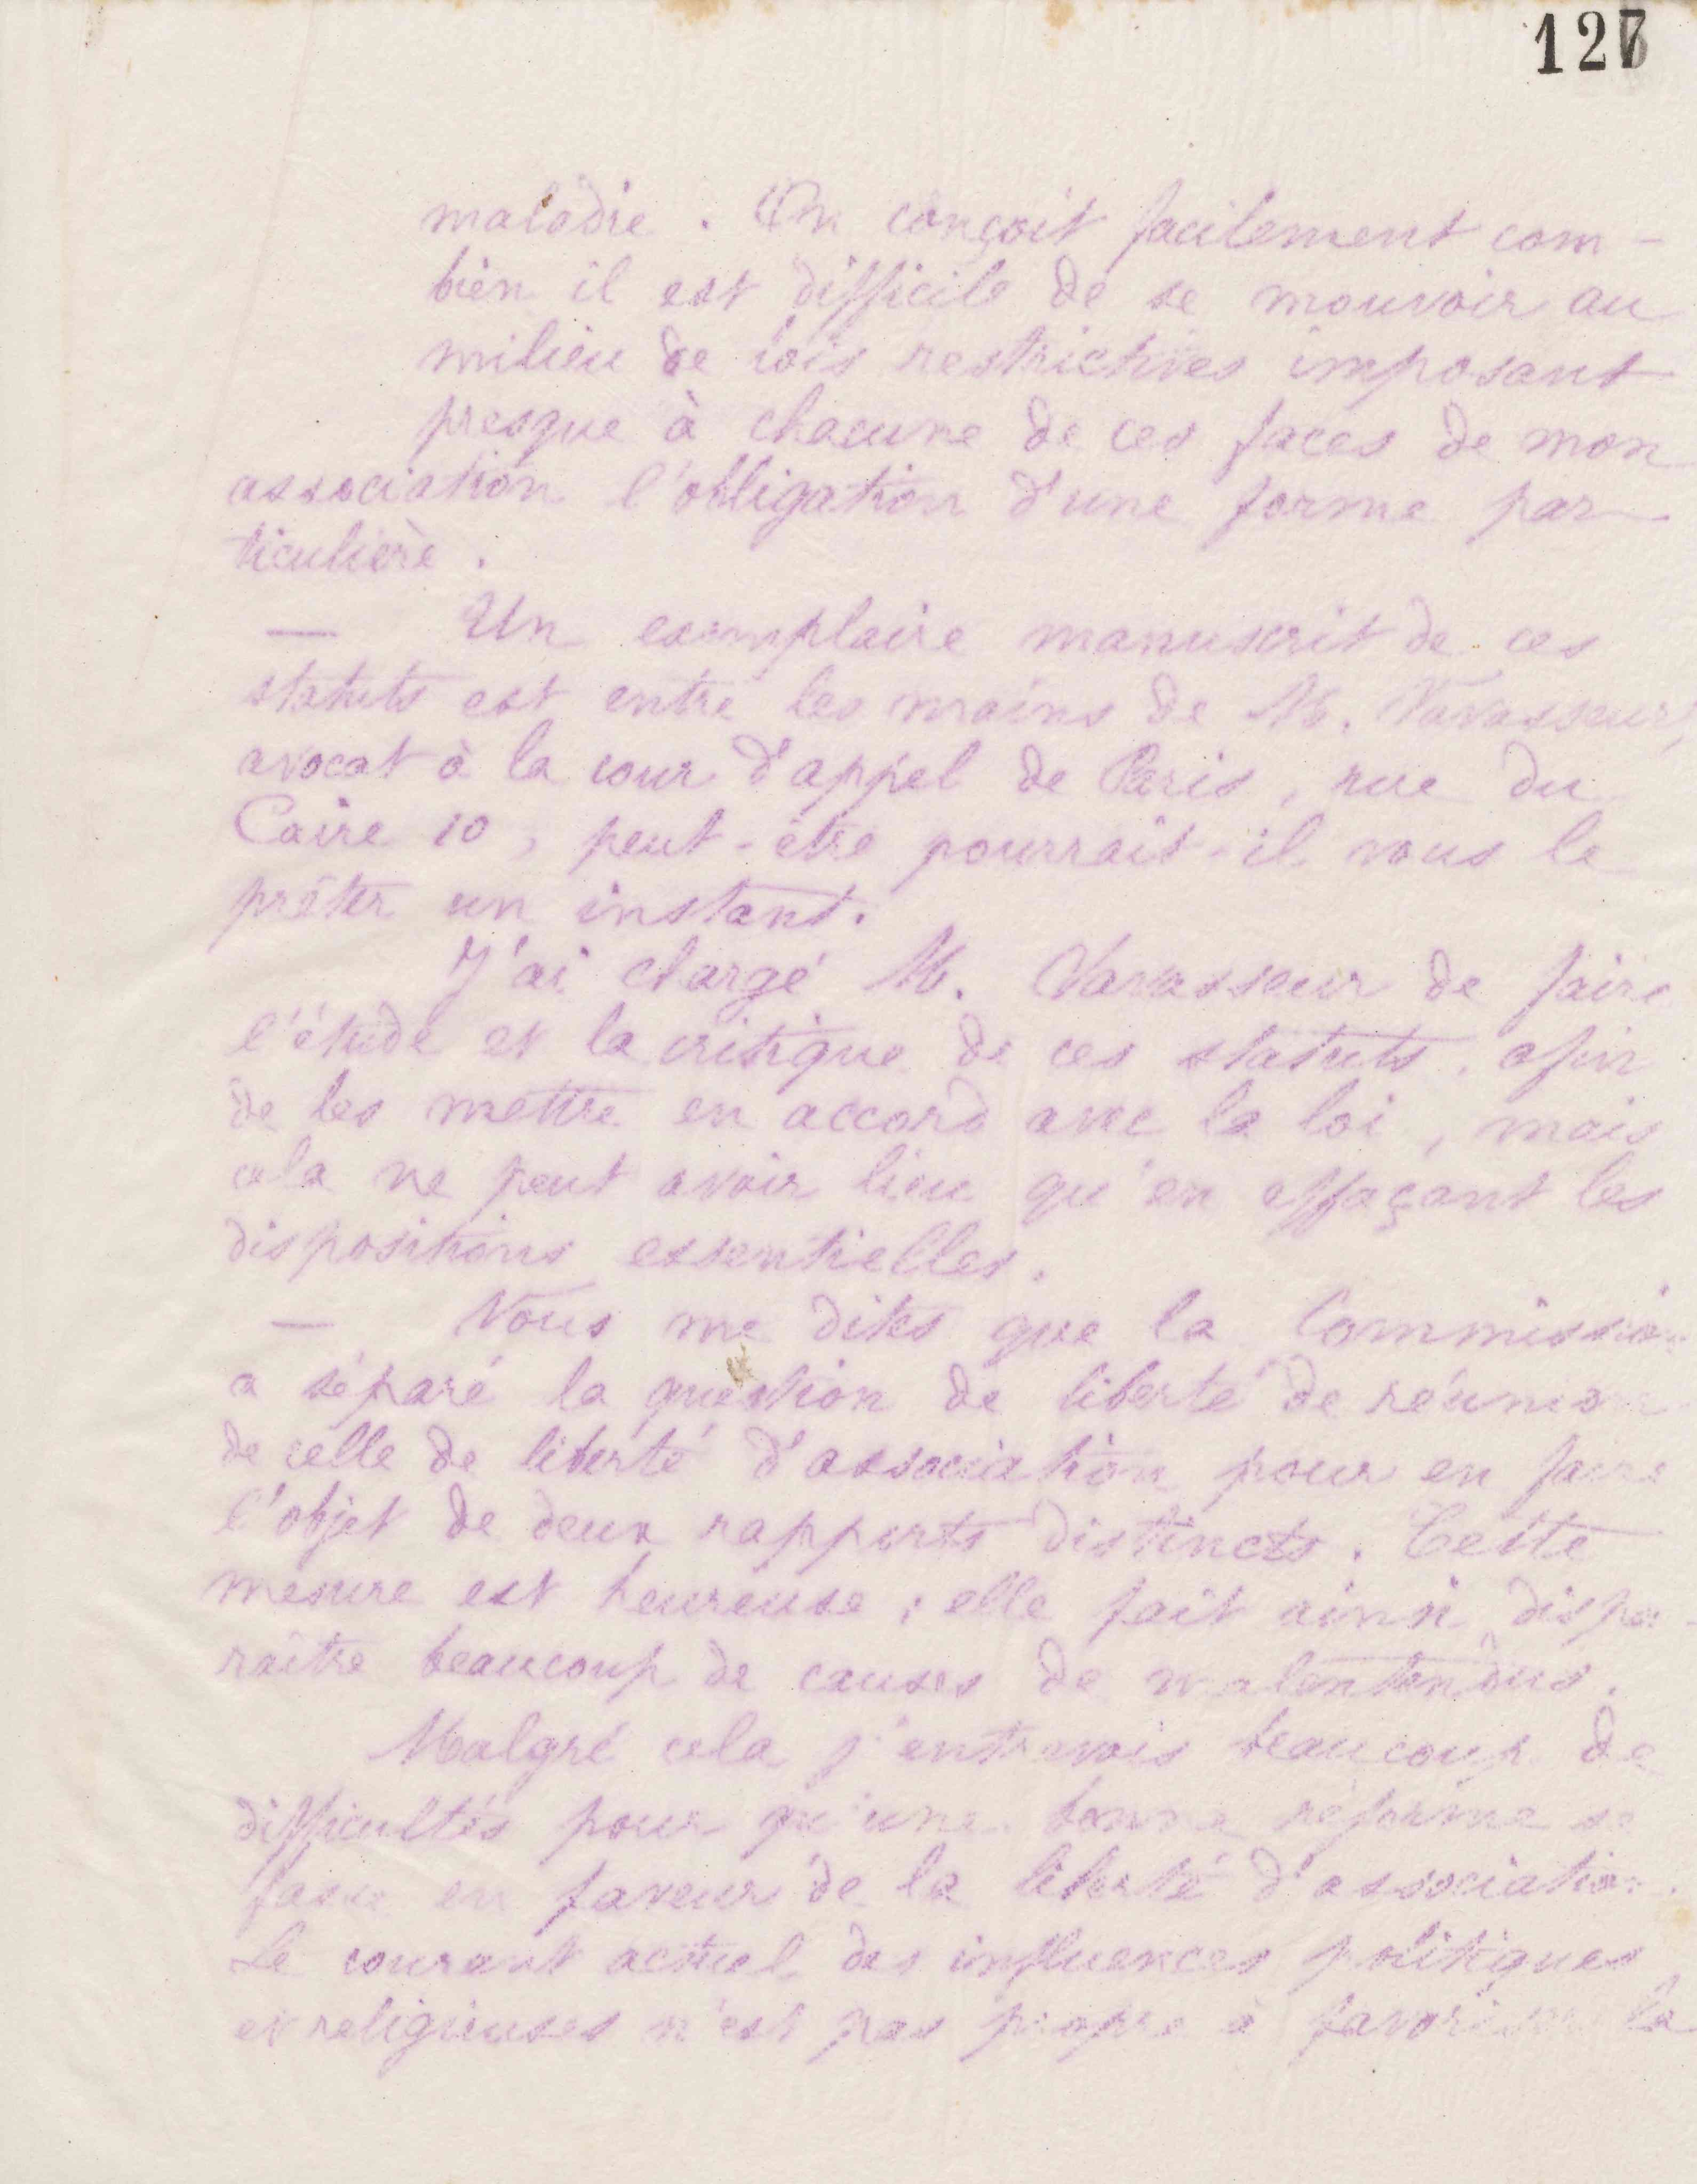 127
maladie. On conçoit facilement com-
bien il est difficile de se mouvoir au
milieu de lois restrictives imposant
presque à chacune de ces faces de mon
association l'obligation d'une forme par-
ticulière.
— Un exemplaire manuscrit de ces
statuts est entre les mains de M. Vavasseur,
avocat à la cour d'appel de Paris, rue du
Caire 10, peut-être pourrait-il vous le
prêter un instant.
J'ai chargé M. Vavasseur de faire
l'étude et la critique de ces statuts, afin
de les mettre en accord avec la loi, mais
cela ne peut avoir lieu qu'en effaçant les
dispositions essentielles.
— Vous me dites que la Commission
a séparé la question de liberté de réunion
de celle de liberté d'association pour en faire
l'objet de deux rapports distincts. Cette
mesure est heureuse ; elle fait ainsi dispa-
raître beaucoup de causes de malentendus.
Malgré cela j'entrevois beaucoup de
difficultés pour qu'une bonne réforme se
fasse en faveur de la liberté d'association.
Le courant actuel des influences politiques
et religieuses n'est pas propre à favoriser la